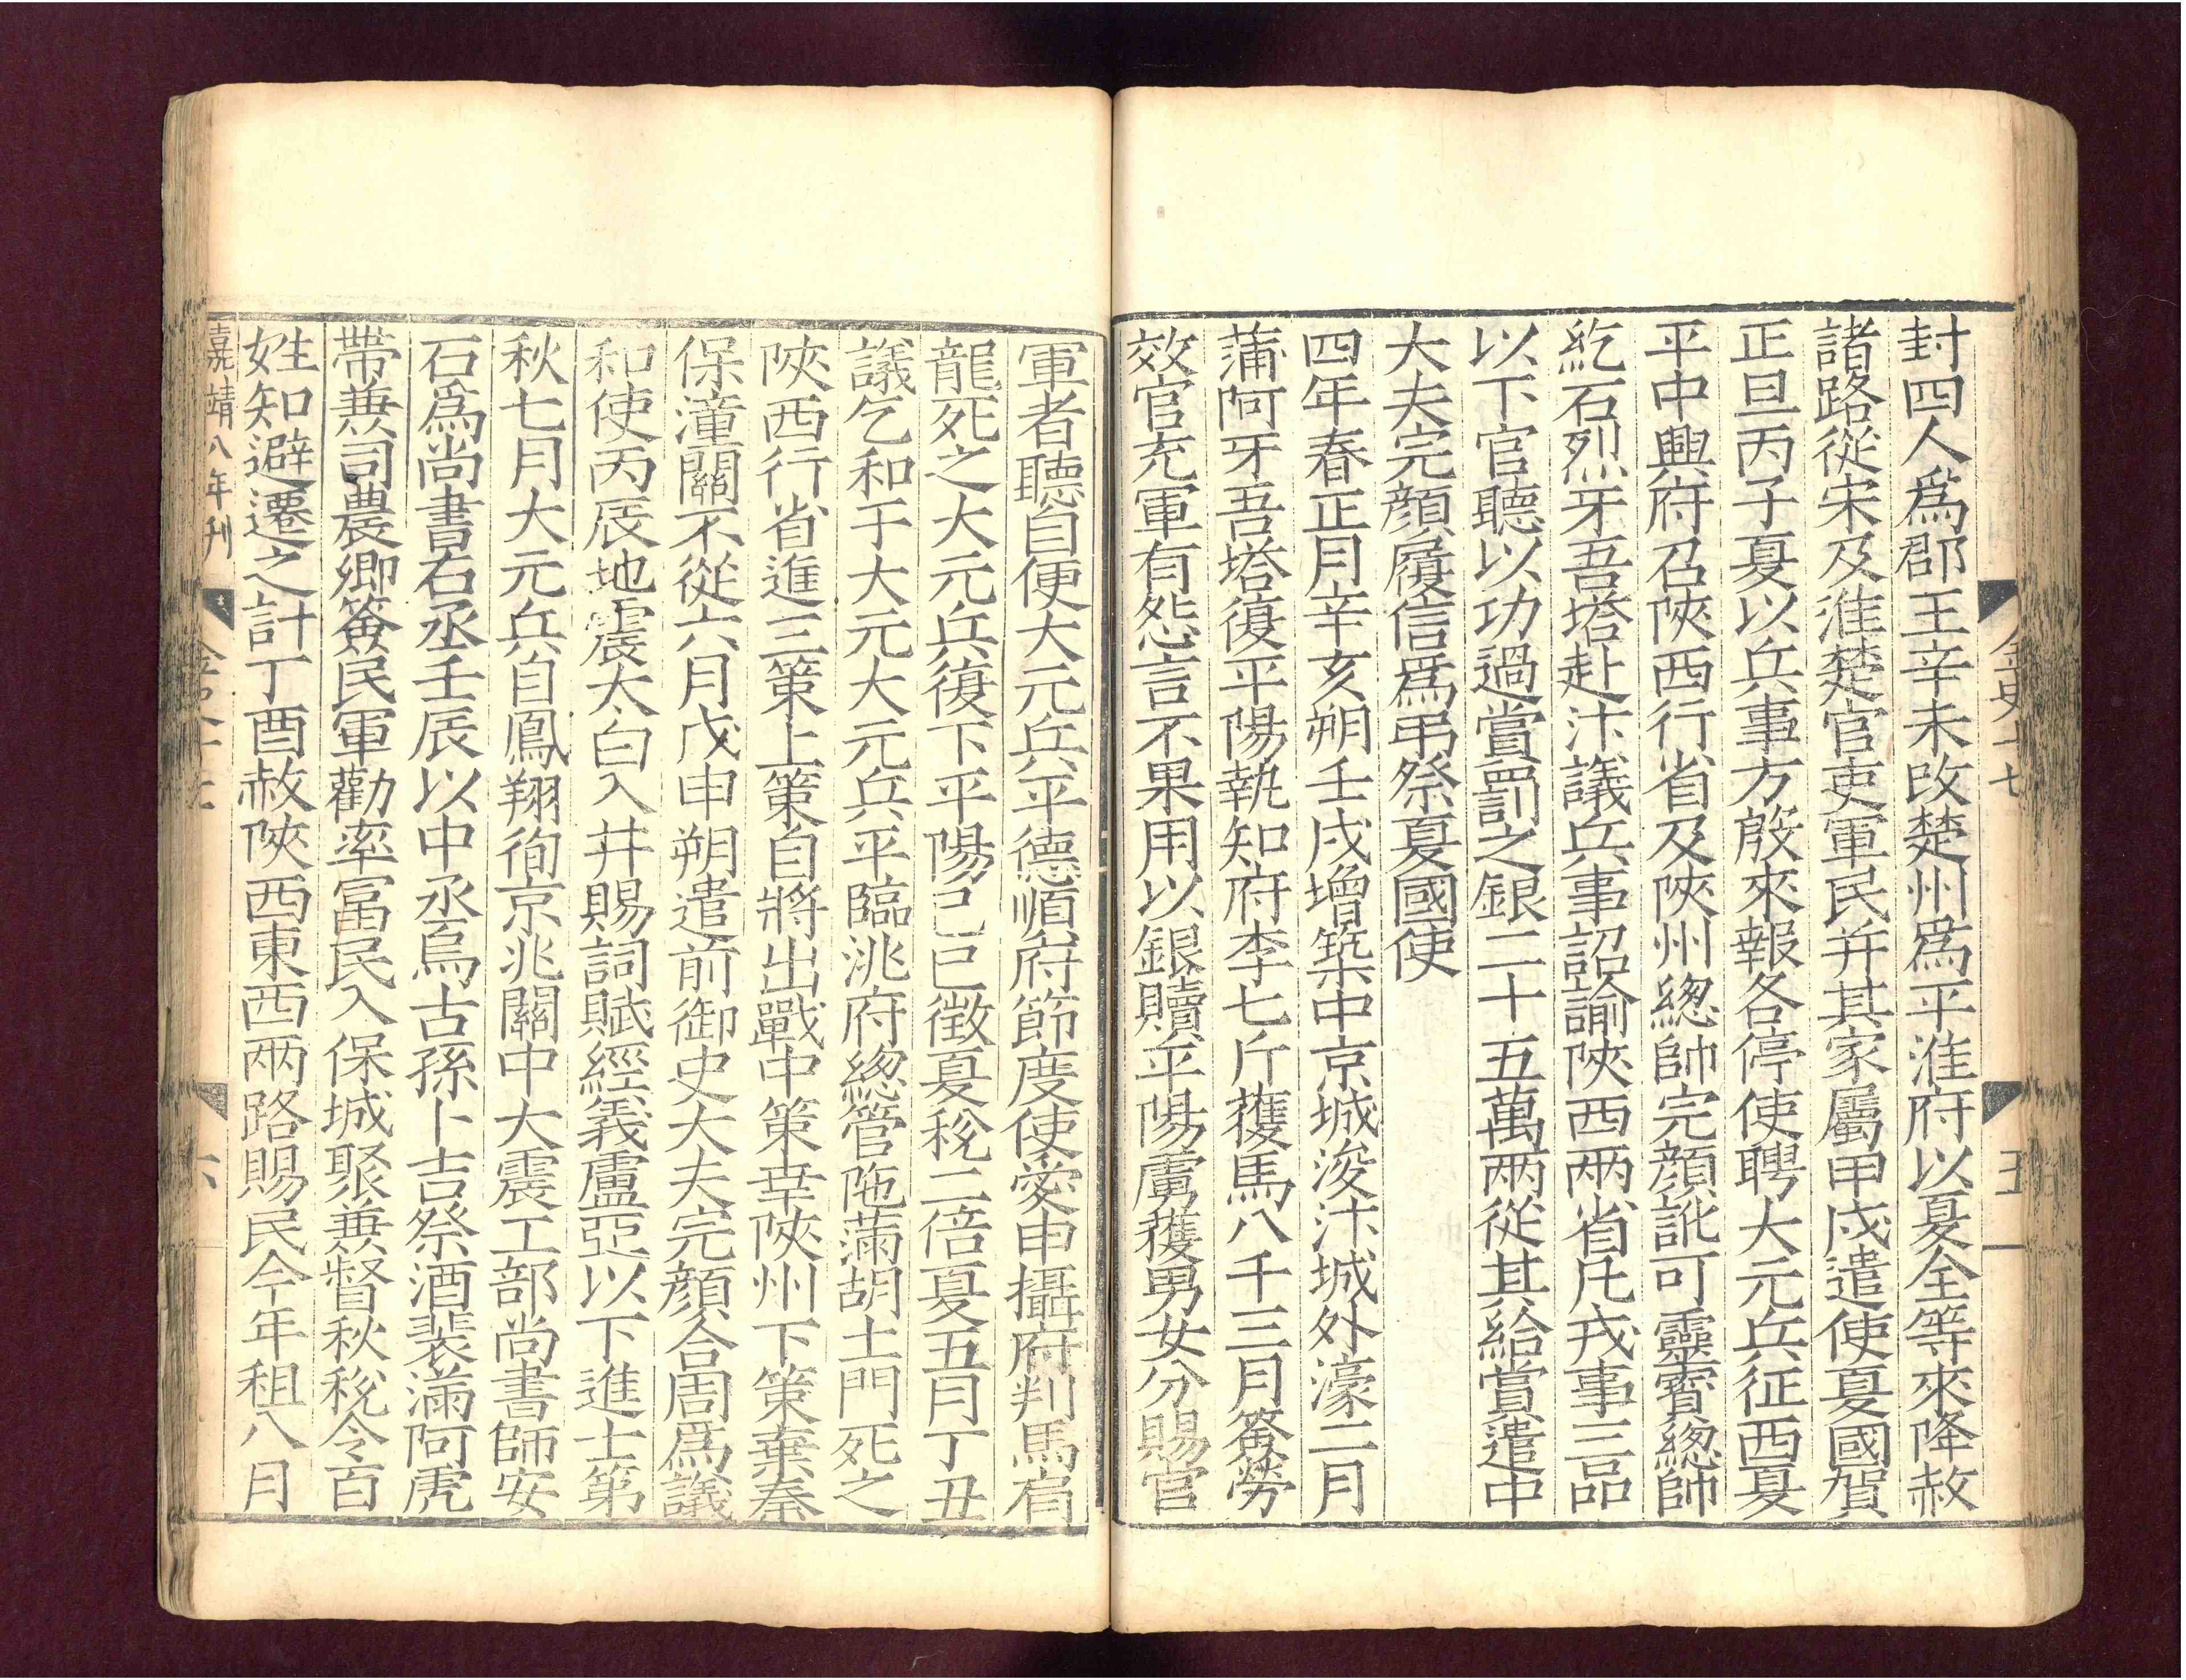 封四人爲郡王辛未改楚州爲平淮府以夏全等來降赦
諸路從宋及淮楚官吏軍民并其家屬甲戌遣使夏國賀
正旦丙子夏以兵事方殷來報各停使聘大元兵征西夏
平中興府召陜西行省及陜州緫帥完顔訛可靈寳緫帥
紇石烈牙吾塔赴汴議兵事詔諭陜西兩省凡戎事三品
以下官聽以功過賞罰之銀二十五萬兩從其給賞遣中
大夫完顔履信爲弔祭夏國使
四年春正月辛亥朔壬戌增築中京城浚汴城外濠二月
蒲阿牙吾塔復平陽執知府李七斤獲馬八千三月簽勞
效官充軍有怨言不果用以銀贖平陽虜獲男女分賜官
軍者聽自便大元兵平德順府節度使愛申攝府判馬肩
龍死之大元兵復下平陽己巳徵夏稅二倍夏五月丁丑
議乞和于大元大元兵平臨洮府緫管陁滿胡土門死之
陜西行省進三策上策自將出戰中策幸陜州下策棄秦
保潼關不從六月戊申朔遣前御史大夫完顔合周爲議
和使丙辰地震太白入井賜詞賦經義盧亞以下進士第
秋七月大元兵自鳳翔徇京兆關中大震工部尚書師安
石爲尚書右丞壬辰以中丞烏古孫卜吉祭酒裴滿阿虎
帶兼司農卿簽民軍勸率富民入保城聚兼督秋稅令百
姓知避遷之計丁酉赦陜西東西兩路賜民今年租八月
嘉靖八年刊
金史十七
五
六